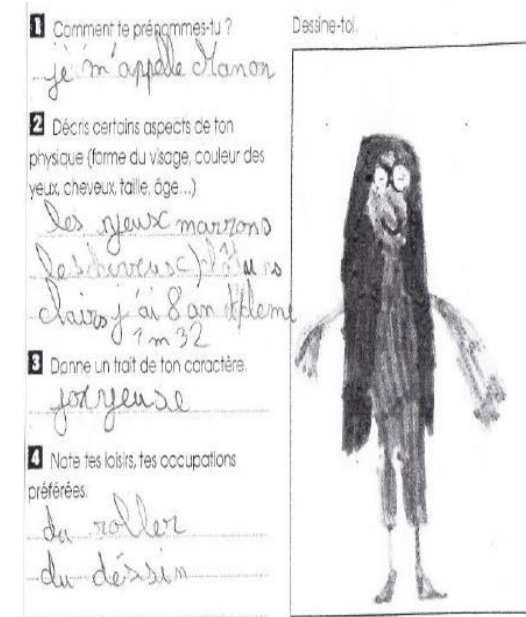 1 Comment te prénommes-tu ?
je m'appelle Manon
2 Décris certains aspects de ton
physique (forme du visage, couleur des
yeux, cheveux, taille, âge...)
les yeux marrons
les cheveux
clairs j'ai 8 an
1 m 32
3 Donne un trait de ton caractère.
joyeuse
4 Note tes loisirs, tes occupations
préférées.
du roller
du déssin
Dessine-toi.